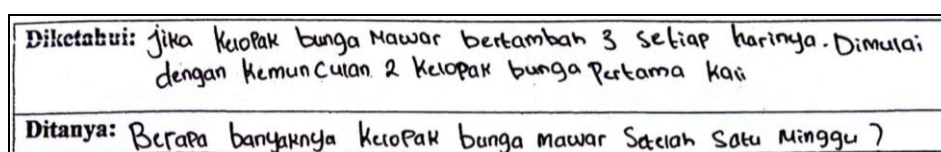 Diketahui: Jika Kelopak bunga Mawar bertambah 3 setiap harinya. Dimulai
dengan Kemunculan 2 Kelopak bunga Pertama Kali
Ditanya: Berapa banyaknya Kelopak bunga mawar Setelah Satu Minggu ?